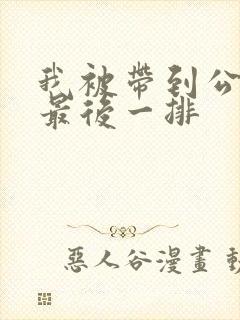 我被帶到公
最後一排
惡人谷漫畫